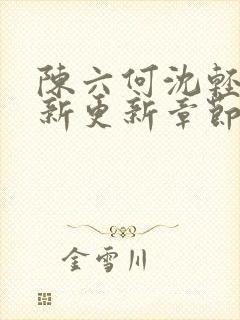 陳六何沈輕
新更新章節
金雪川